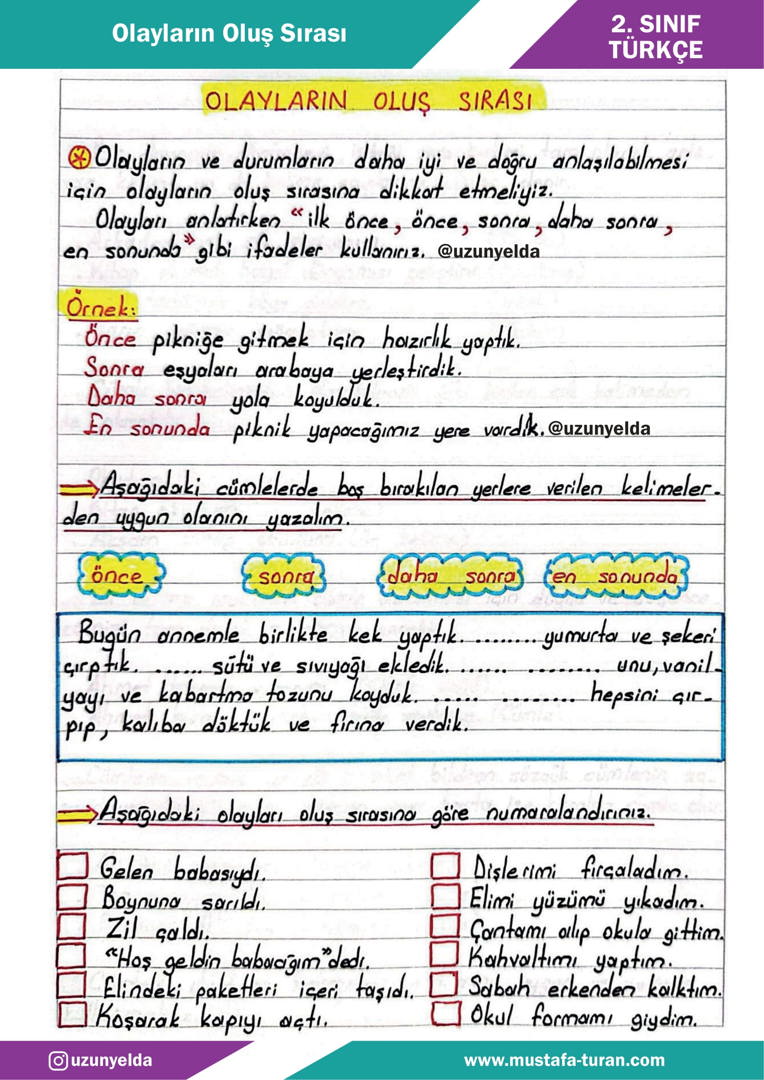 Olayların Oluş Sırası
2. SINIF
TÜRKÇE
OLAYLARIN OLUŞ SIRASI
Olayların ve durumların daha iyi ve doğru anlaşılabilmesi
için olayların oluş sırasına dikkat etmeliyiz.
Olayları anlatırken "ilk önce, önce, sonra, daha sonra,
en sonunda" gibi ifadeler kullanırız. @uzunyelda
Örnek:
Önce pikniğe gitmek için hazırlık yaptık.
Sonra eşyaları arabaya yerleştirdik.
Daha sonra yola koyulduk.
En sonunda piknik yapacağımız yere vardık. @uzunyelda
Aşağıdaki cümlelerde boş bırakılan yerlere verilen kelimeler-
den uygun olanını yazalım.
önce sonra daha sonra en sonunda
Bugün annemle birlikte kek yaptık. ........ yumurta ve şekeri
çırptık. ...... sütü ve sıvıyağı ekledik. ...... ........ unu, vanil-
yayı ve kabartma tozunu koyduk. ...... ......... hepsini çır-
pıp, kalıba döktük ve fırına verdik.
Aşağıdaki olayları oluş sırasına göre numaralandırınız.
Gelen babasıydı.
Boynuna sarıldı.
Zil çaldı.
"Hoş geldin babacığım" dedi.
Elindeki paketleri içeri taşıdı.
Koşarak kapıyı açtı.
Dişlerimi fırçaladım.
Elimi yüzümü yıkadım.
Çantamı alıp okula gittim.
Kahvaltımı yaptım.
Sabah erkenden kalktım.
Okul formamı giydim.
uzunyelda
www.mustafa-turan.com